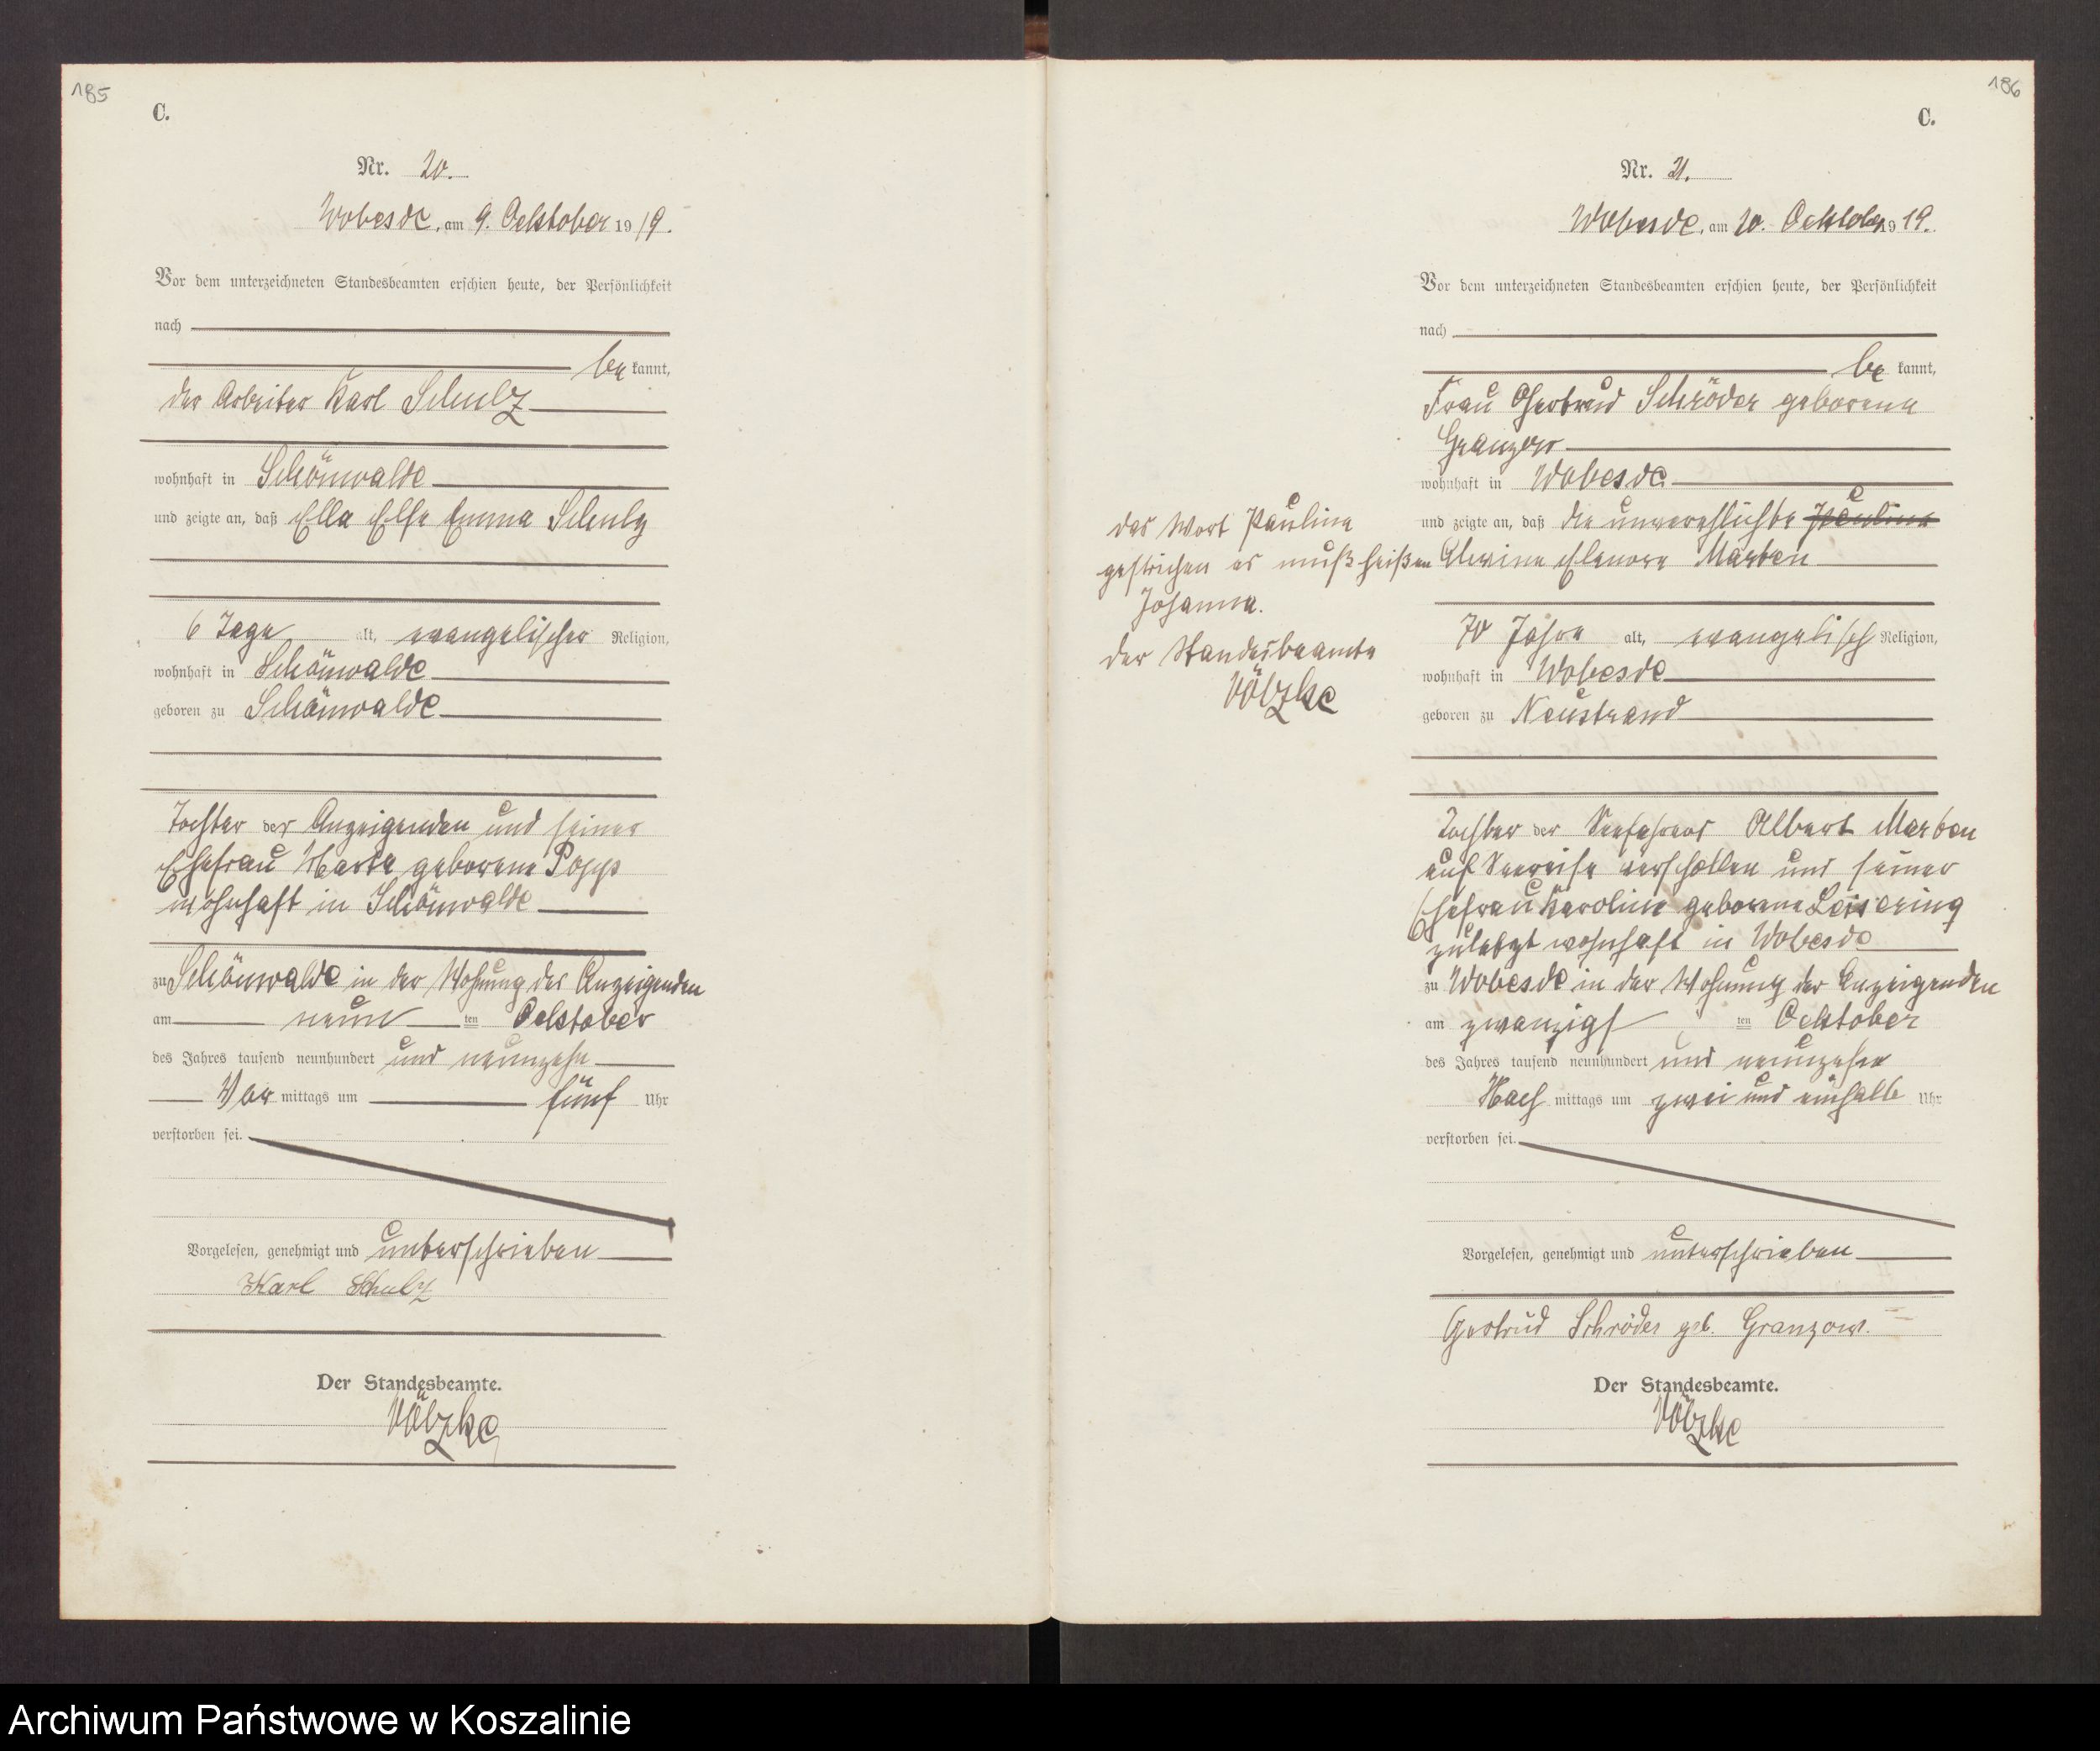 185
C.
Nr. 20.
Wobesde, am 9. Ocktober 1919.
Vor dem unterzeichneten Standesbeamten erschien heute, der Persönlichkeit
nach
be kannt,
der Arbeiter Karl Schulz
wohnhaft in Schönwalde
und zeigte an, daß Ella Else Emma Schulz
6 Tage alt, evangelischer Religion,
wohnhaft in Schönwalde
geboren zu Schönwalde
Tochter des Anzeigenden und seiner
Ehefrau geborene Popp
wohnhaft in Schönwalde
zu Schönwalde in der Wohnung des Anzeigenden
am neun ten Ocktober
des Jahres tausend neunhundert und neunzehn
Vor mittags um fünf Uhr
verstorben sei.
Vorgelesen, genehmigt und unterschrieben
Karl Schulz
Der Standesbeamte.
Völzke
186
C.
Nr. 21.
Wobesde, am 20. Ocktober 1919.
Vor dem unterzeichneten Standesbeamten erschien heute, der Persönlichkeit
nach
be kannt,
Frau Gertrud Schröder geborene
Granzow
wohnhaft in Wobesde
und zeigte an, daß die unverehlichte Pauline
Alwine Elenore Marten
70 Jahre alt, evangelisch Religion,
wohnhaft in Wobesde
geboren zu Neustrand
Tochter des Seefahrers Albert Marten
auf Seereise verschollen und seiner
Ehefrau Karoline geborene Leisering
zuletzt wohnhaft in Wobesde
zu Wobesde in der Wohnung der Anzeigenden
am zwanzigs ten Ocktober
des Jahres tausend neunhundert und neunzehn
Nach mittags um zwei und einhalb Uhr
verstorben sei.
Vorgelesen, genehmigt und unterschrieben
Gertrud Schröder geb. Granzow.
Der Standesbeamte.
Völzke
das Wort Pauline
gestrichen es muß heißen
Johanna.
der Standesbeamte
Völzke
Archiwum Państwowe w Koszalinie